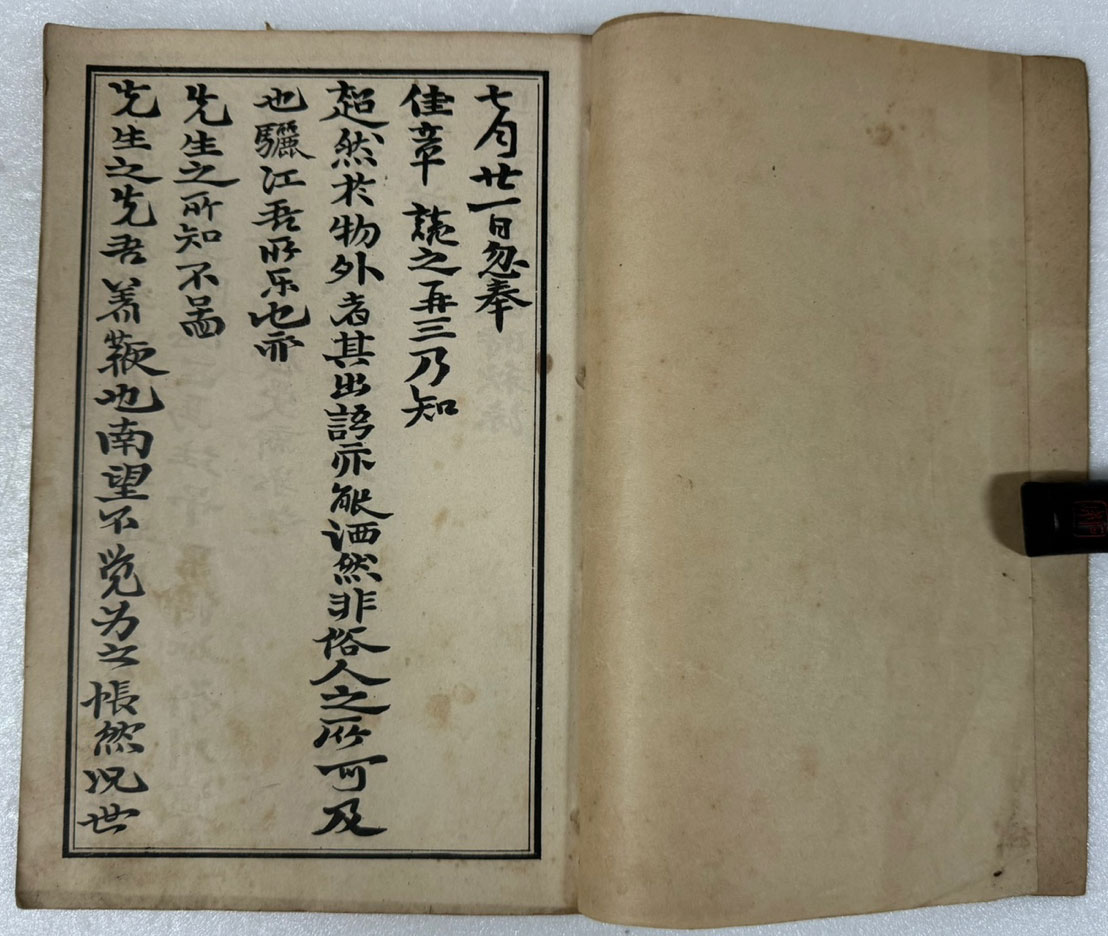 七月廿一日忽奉
佳章讀之再三乃知
超然於物外者其出語亦能洒然非俗人之所可及
也驪江吾所乐也亦
先生之所知不啚
先生之先吾著鞭也南望不觉为之悵然况世